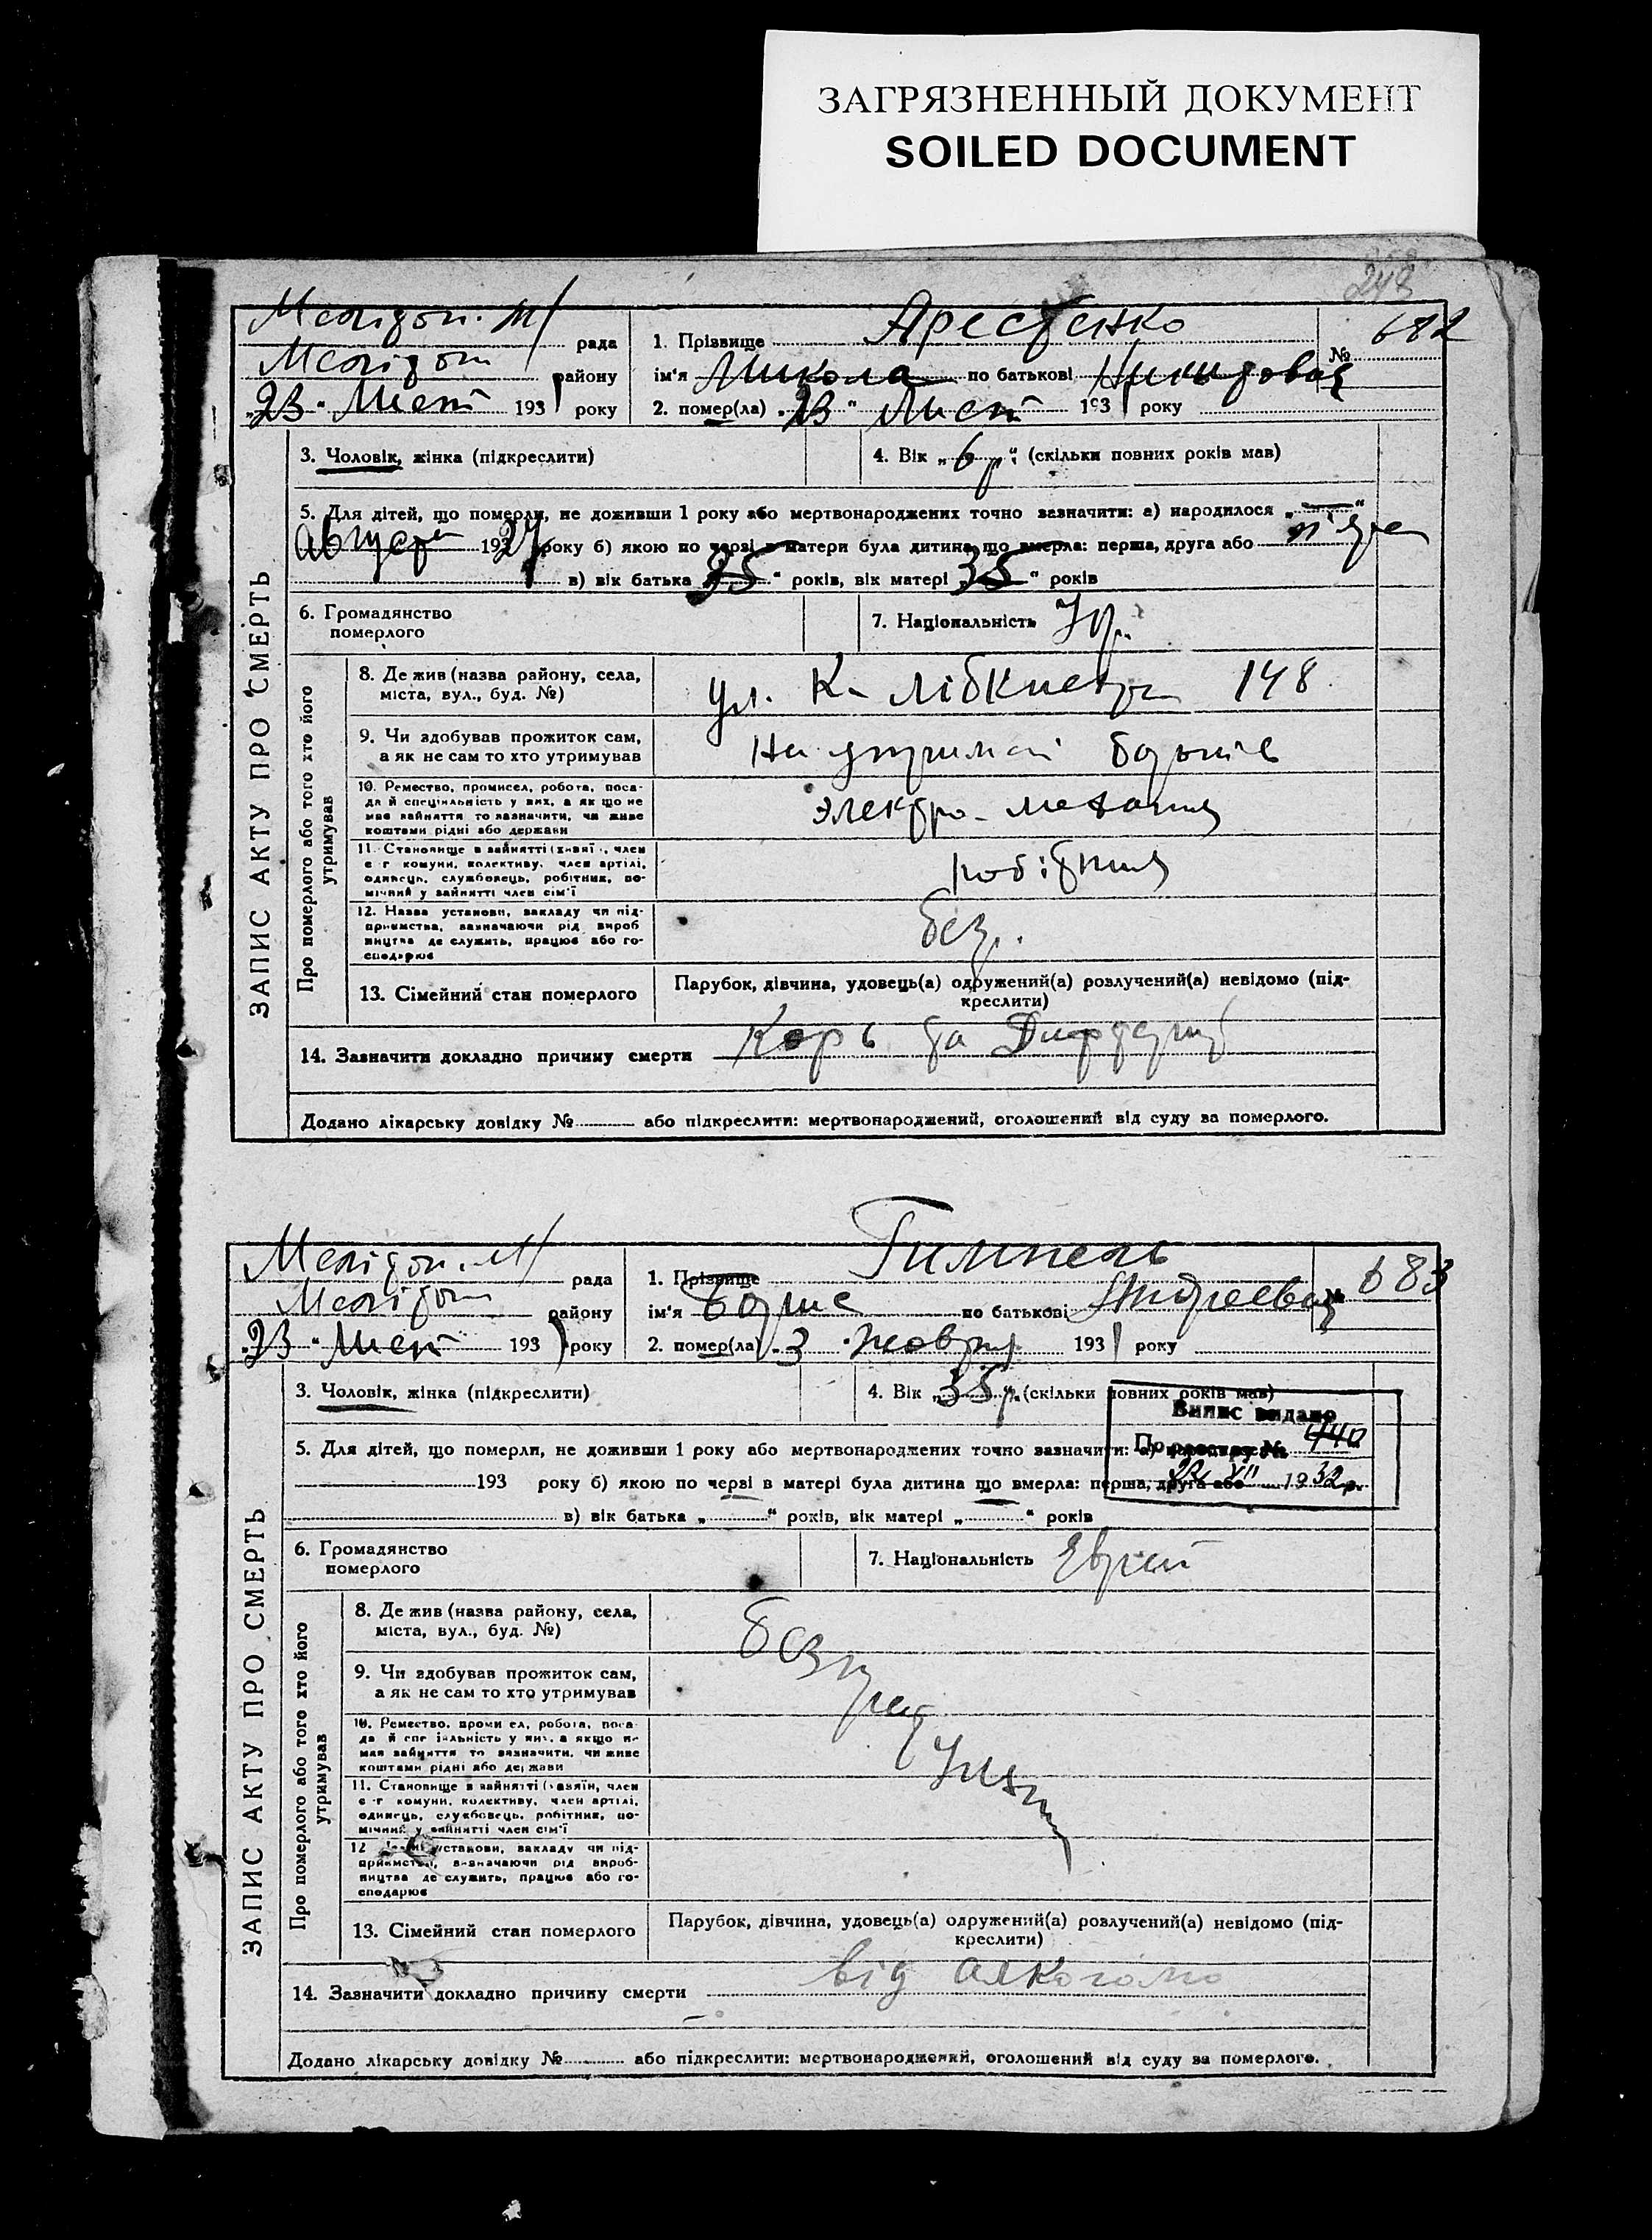 ЗАГРЯЗНЕННЫЙ ДОКУМЕНТ
SOILED DOCUMENT
248
ЗАПИС АКТУ ПРО СМЕРТЬ
рада
району
"23" Лист 1931 року
1. Прізвище Арестенко № 682
ім'я Микола по батькові
2. помер(ла) "23" Лист 1931 року
3. Чоловік, жінка (підкреслити)
4. Вік "6 р." (скільки повних років мав)
5. Для дітей, що померли, не доживши 1 року або мертвонароджених точно зазначити: а) народилося "—"
августа 193 27 року б) якою по черзі в матери була дитина що вмерла: перша, друга або п'ята
в) вік батька "35" років, вік матері "35" років
6. Громадянство
померлого
7. Національність Укр.
Про померлого або того хто його
утримував
8. Де жив (назва району, села,
міста, вул., буд. №)
ул. К. Лібкнехта 148
9. Чи здобував прожиток сам,
а як не сам то хто утримував
На утриман батьків
10. Ремество, промисел, робота, поса-
да й спеціяльність у них, а як що не
має вайняття то зазначити, чи живе
коштами рідні або держави
электро-механик
11. Становище в зайнятті (хазяї, член
с-г комуни, колективу, член артілі,
одинець, службовець, робітник, по-
мічний у зайнятті член сім'ї
робітник
12. Назва установи, закладу чи під-
приємства, зазначаючи рід вироб
ництва де служить, працює або го-
сподарює
без.
13. Сімейний стан померлого
Парубок, дівчина, удовець(а) одружений(а) розлучений(а) невідомо (під-
креслити)
14. Зазначити докладно причину смерти Корь та Дифтерит
Додано лікарську довідку № або підкреслити: мертвонароджений, оголошений від суду за померлого.
ЗАПИС АКТУ ПРО СМЕРТЬ
рада
району
"23" Лист 1931 року
1. Прізвище Гимпель № 683
ім'я по батькові Андреевич
2. помер(ла) "3" жовтня 1931 року
3. Чоловік, жінка (підкреслити)
4. Вік "35 р." (скільки повних років мав)
Випис видано
По реестру № 440
22 VII 1932 р.
5. Для дітей, що померли, не доживши 1 року або мертвонароджених точно зазначити: а) народилося
193 року б) якою по черзі в матері була дитина що вмерла: перша, друга або
в) вік батька " " років, вік матері " " років
6. Громадянство
померлого
7. Національність Еврей
Про померлого або того хто його
утримував
8. Де жив (назва району, села,
міста, вул., буд. №)
9. Чи здобував прожиток сам,
а як не сам то хто утримував
10. Ремество, проми ел, робота, поса-
да й спе іяльність у них, а якщо н-
мая зайняття то зазначити, чи живе
коштами рідні або держави
11. Становище в зайнятті (хазяїн, член
с-г комуни, колективу, член артілі,
одинець, службовець, робітник, по-
мічний у зайнятті член сім'ї
12 установи, закладу чи під-
приємства, зазначаючи рід вироб-
ництва де служить, працює або го-
сподарює
13. Сімейний стан померлого
Парубок, дівчина, удовець(а) одружений(а) розлучений(а) невідомо (під-
креслити)
14. Зазначити докладно причину смерти від алкоголю
Додано лікарську довідку № або підкреслити: мертвонароджений, оголошений від суду за померлого.